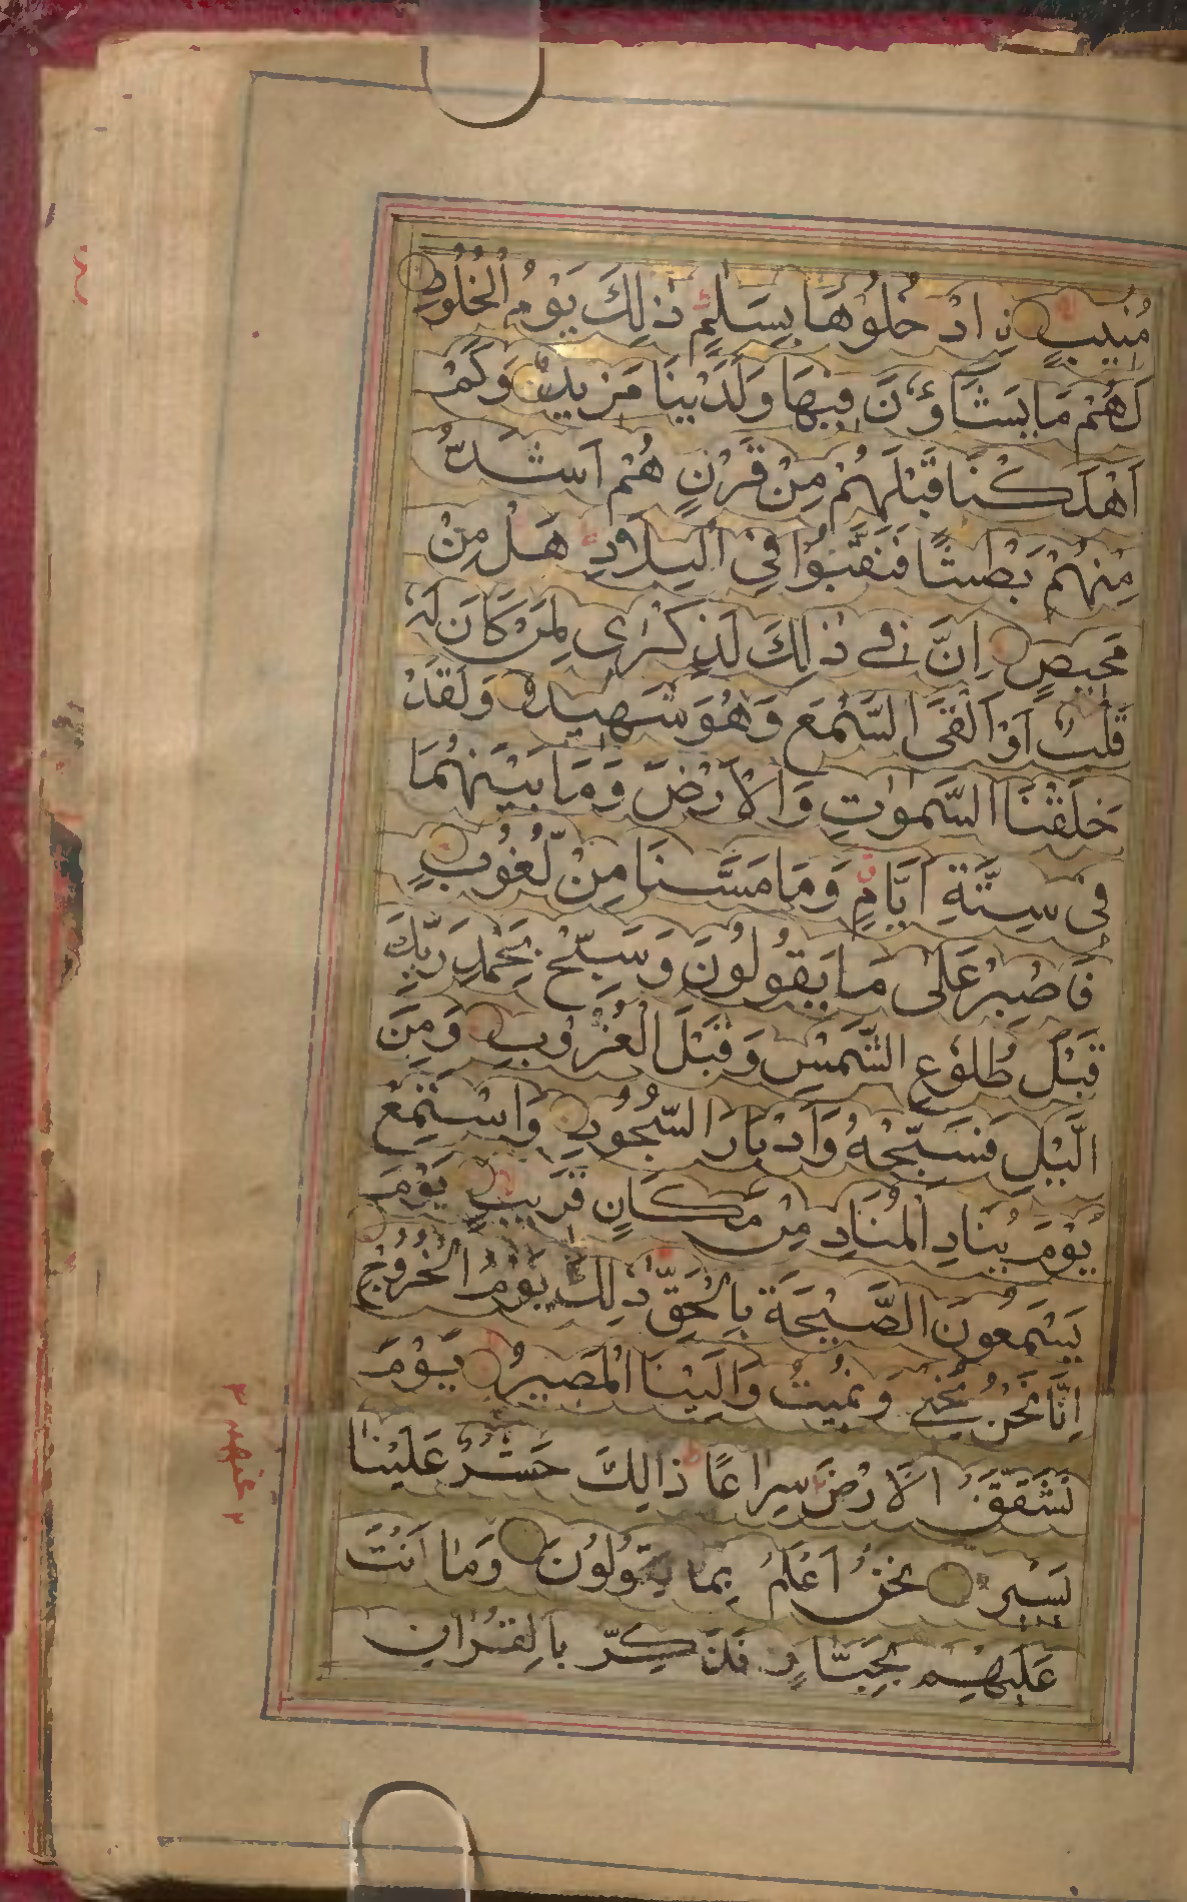 مُنِيبٍ نِ ادْخُلُوْهَا بِسَلٰمٍ ذٰلِكَ يَوْمُ الْخُلُودِ
لَهُمْ مَا يَشَآؤُنَ فِيهَا وَلَدَيْنَا مَزِيدٌ وَكَمْ
اَهْلَكْنَا قَبْلَهُمْ مِنْ قَرْنٍ هُمْ اَشَدُّ
مِنْهُمْ بَطْشًا فَنَقَّبُوْا فِى الْبِلَادِ هَلْ مِنْ
مَحِيصٍ اِنَّ فِے ذٰلِكَ لَذِكْرٰى لِمَنْ كَانَ لَهُ
قَلْبٌ اَوْ اَلْقَى السَّمْعَ وَهُوَ شَهِيدٌ وَلَقَدْ
خَلَقْنَا السَّمٰوٰتِ وَالْاَرْضَ وَمَا بَيْنَهُمَا
فِى سِتَّةِ اَيَّامٍ وَمَا مَسَّنَا مِنْ لُّغُوْبٍ
فَاصْبِرْ عَلٰى مَا يَقُولُونَ وَسَبِّحْ بِحَمْدِ رَبِّكَ
قَبْلَ طُلُوْعِ الشَّمْسِ وَقَبْلَ الْغُرُوْبِ وَمِنَ
الَّيْلِ فَسَبِّحْهُ وَاَدْبَارَ السُّجُوْدِ وَاسْتَمِعْ
يَوْمَ يُنَادِ الْمُنَادِ مِنْ مَكَانٍ قَرِيْبٍ يَوْمَ
يَسْمَعُونَ الصَّيْحَةَ بِالْحَقِّ ذٰلِكَ يَوْمُ الْخُرُوْجِ
اِنَّا نَحْنُ نُحْيے وَنُمِيتُ وَاِلَيْنَا الْمَصِيْرُ يَوْمَ
تَشَقَّقُ الْاَرْضُ سِرَاعًا ذَالِكَ حَشْرٌ عَلَيْنَا
يَسِيْرٌ نَحْنُ اَعْلَمُ بِمَا يَقُولُونَ وَمَا اَنْتَ
عَلَيْهِمْ بِجَبَّارٍ فَذَكِّرْ بِالْقُرْاٰنِ